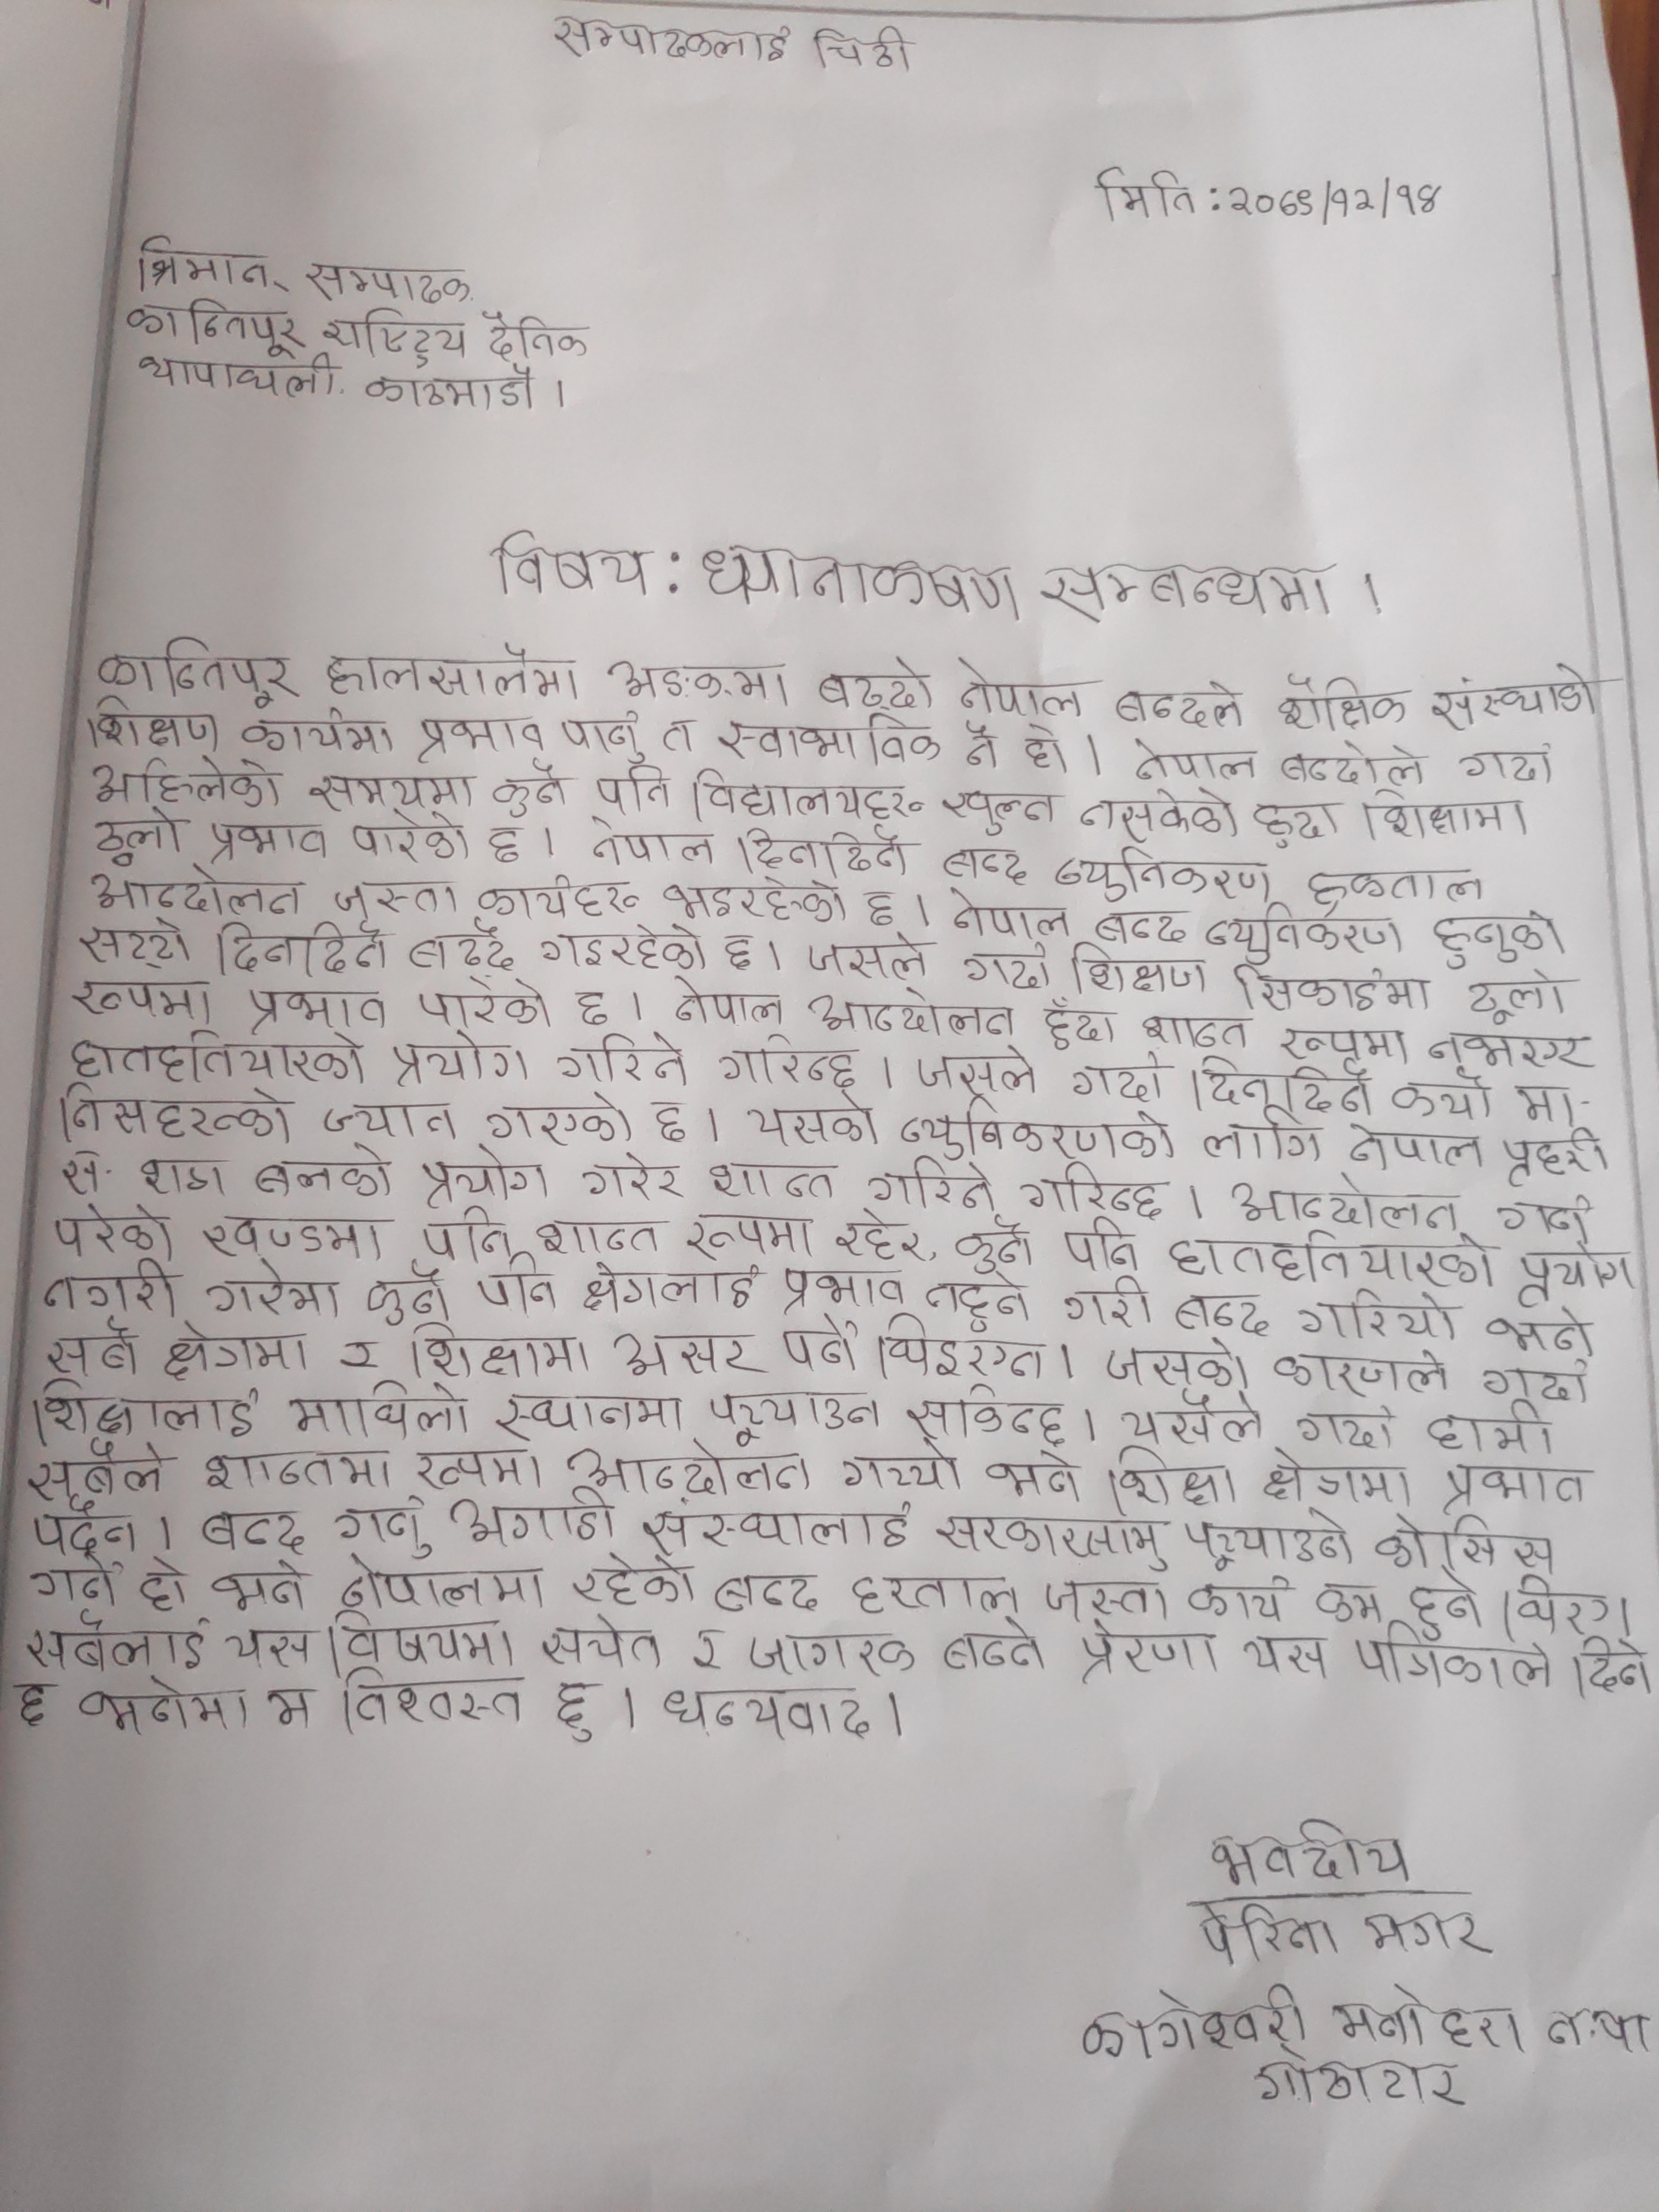 सम्पादकलाई चिठी
मिति : २०७९/१२/१४
श्रिमान् सम्पादक
कान्तिपूर राष्ट्रिय दैनिक
थापाथली, काठमाडौं ।
विषय : ध्यानाकषण सम्बन्धमा ।
कान्तिपूर हालसालैमा अङ्कमा बढ्दो नेपाल बन्दले शैक्षिक संस्थाको
शिक्षण कार्यमा प्रभाव पार्नु त स्वाभाविक नै हो । नेपाल बन्दोले गर्दा
अहिलेको समयमा कुनै पनि विद्यालयहरू खुल्न नसकेको हुदा शिक्षामा
ठूलो प्रभाव पारेको छ । नेपाल दिनदिनै बन्द न्युनिकरण हकताल
आन्दोलन जस्ता कार्यहरू भइरहेको छ । नेपाल बन्द न्युनिकरण हुनुको
सट्टो दिनदिनै बढ्दै गइरहेको छ । जसले गर्दा शिक्षण सिकाईमा ठूलो
रूपमा प्रभाव पारेको छ । नेपाल आन्दोलन हुँदा शान्त रूपमा नभएर
हातहतियारको प्रयोग गरिने गरिन्छ । जसले गर्दा दिनदिनै कयौं मा-
निसहरूको ज्यान गएको छ । यसको न्युनिकरणको लागि नेपाल प्रहरी
से. शस्त्र बलको प्रयोग गरेर शान्त गरिने गरिन्छ । आन्दोलन गर्नु
परेको खण्डमा पनि शान्त रूपमा रहेर, कुनै पनि हातहतियारको प्रयोग
नगरी गरेमा कुनै पनि क्षेत्रलाई प्रभाव नहुने गरी बन्द गरियो भने
सबै क्षेत्रमा र शिक्षामा असर पर्ने थिइएन । जसको कारणले गर्दा
शिक्षालाई माथिलो स्थानमा पुर्‍याउन सकिन्छ । यसैले गर्दा हामी
सबैले शान्तमा रूपमा आन्दोलन गर्‍यो भने शिक्षा क्षेत्रमा प्रभाव
पर्दैन । बन्द गर्नु अगाडी संस्थालाई सरकारसामु पुर्‍याउने कोसिस
गर्ने हो भने नेपालमा रहेको बन्द हरताल जस्ता कार्य कम हुने थिए ।
सबैलाई यस विषयमा सचेत र जागरुक बन्ने प्रेरणा यस पत्रिकाले दिने
छ भनेमा म विश्वस्त छु । धन्यवाद ।
भवदीय
पेरिना मगर
कागेश्वरी मनोहरा न.पा
गोठाटार